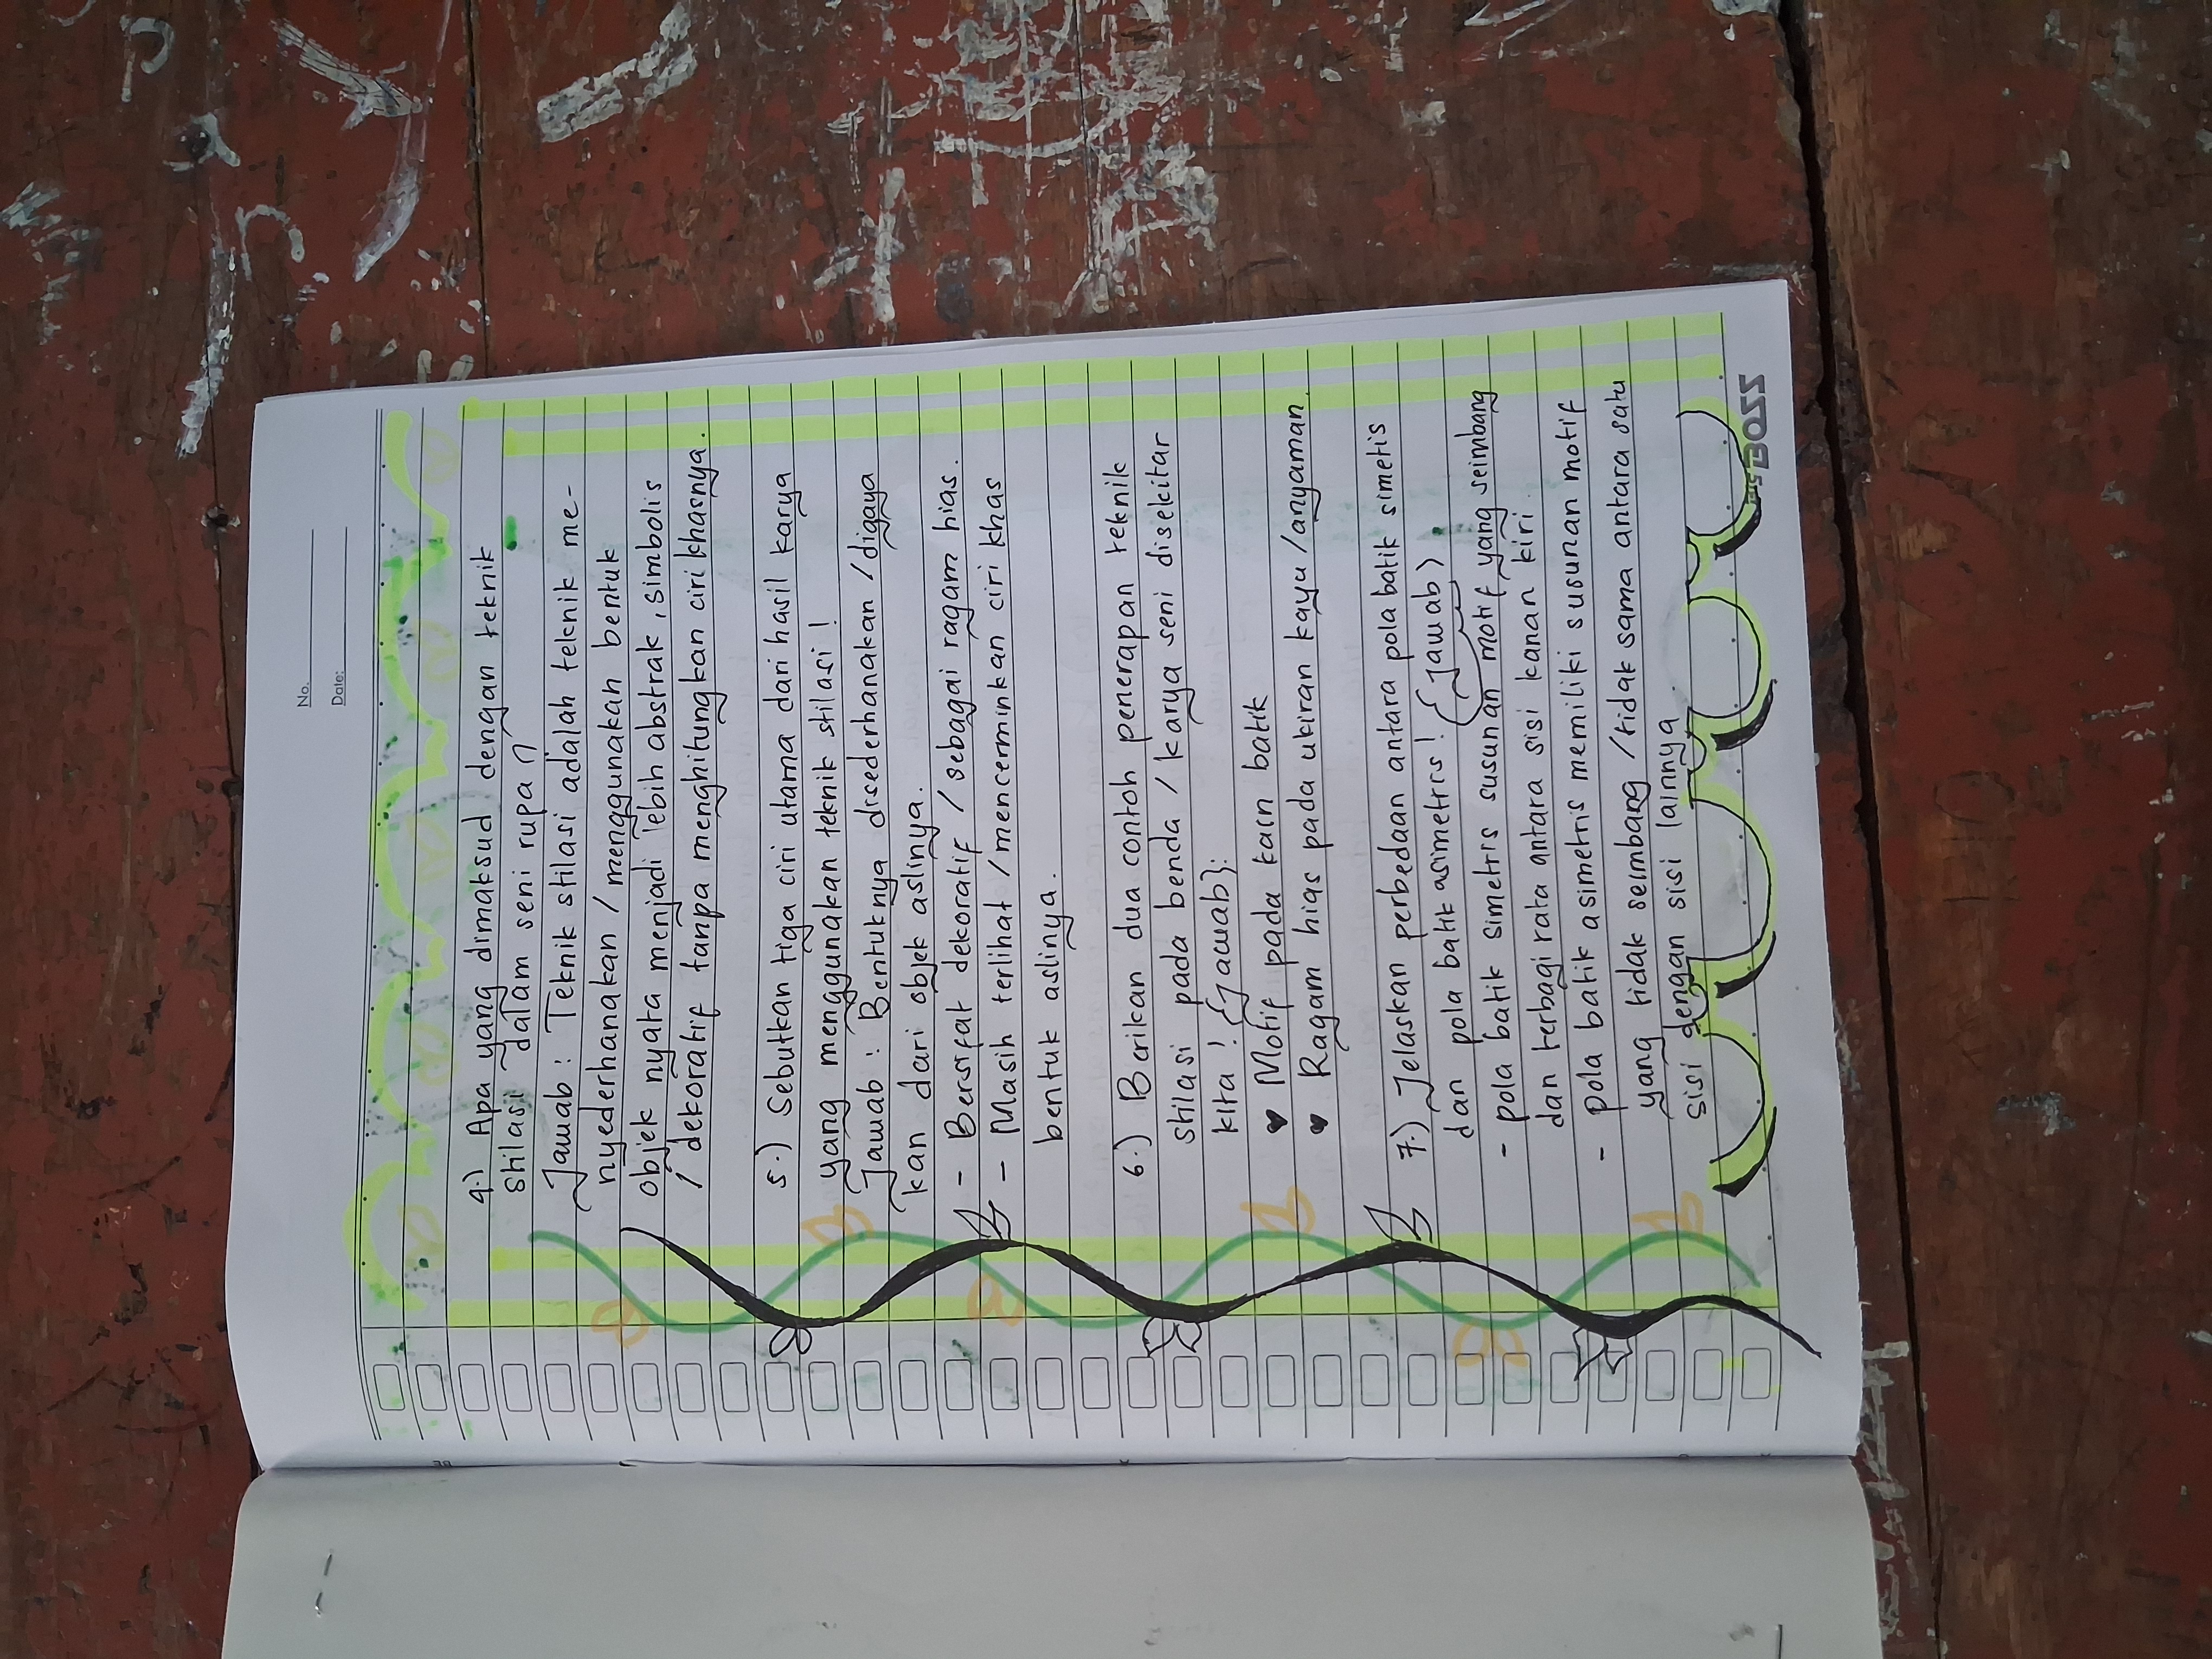 No.
Date:
4.) Apa yang dimaksud dengan teknik
stilasi dalam seni rupa?
Jawab : Teknik stilasi adalah teknik me-
nyederhanakan / menggunakah bentuk
objek nyata menjadi lebih abstrak, simbolis
/ dekoratif tanpa menghitungkan ciri khasnya.
5.) Sebutkan tiga ciri utama dari hasil karya
yang menggunakan teknik stilasi!
Jawab : Bentuknya disederhanakan / digaya
kan dari objek aslinya.
- Bersifat dekoratif / sebagai ragam hias.
- Masih terlihat / mencerminkan ciri khas
bentuk aslinya.
6.) Berikan dua contoh penerapan teknik
stilasi pada benda / karya seni disekitar
kita! {Jawab}:
♥ Motif pada kain batik
♥ Ragam hias pada ukiran kayu / anyaman.
7.) Jelaskan perbedaan antara pola batik simetis
dan pola batik asimetris! {Jawab}
- pola batik simetris susunan motif yang seimbang
dan terbagi rata antara sisi kanan kiri.
- pola batik asimetris memiliki susunan motif
yang tidak seimbang / tidak sama antara satu
sisi dengan sisi lainnya.
BOSS